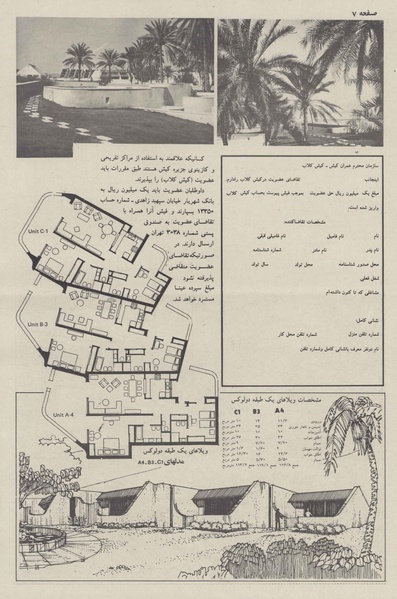 صفحه ۷
کسانیکه علاقمند به استفاده از مراکز تفریحی
و کازینوی جزیره کیش هستند طبق مقررات باید
عضویت (کیش کلاب) را بپذیرند.
داوطلبان عضویت باید یک میلیون ریال به
بانک شهریار خیابان سپهبد زاهدی - شماره حساب
۱۳۳۵۰ بسپارند و فیش آنرا همراه با
تقاضای عضویت به صندوق
پستی شماره ۳۰۳۸ تهران
ارسال دارند. در
صورتیکه تقاضای
عضویت متقاضی
پذیرفته نشود
مبلغ سپرده عینا
مسترد خواهد شد.
سازمان محترم عمران کیش - کیش کلاب
اینجانب تقاضای عضویت در کیش کلاب را دارم.
مبلغ یک میلیون ریال حق عضویت بموجب فیش پیوست بحساب کیش کلاب
واریز شده است.
مشخصات تقاضاکننده:
نام نام فامیل نام فامیلی قبلی
نام پدر نام مادر شماره شناسنامه
محل صدور شناسنامه محل تولد سال تولد
شغل فعلی
مشاغلی که تا کنون داشته‌ام
نشانی کامل:
شماره تلفن منزل شماره تلفن محل کار
نام دو نفر معرف با نشانی کامل و شماره تلفن
Unit C-1
Unit B-3
Unit A-4
ویلاهای یک طبقه دولوکس
مدلهای A4,B3,C1
مشخصات ویلاهای یک طبقه دولوکس
C1 B3 A4